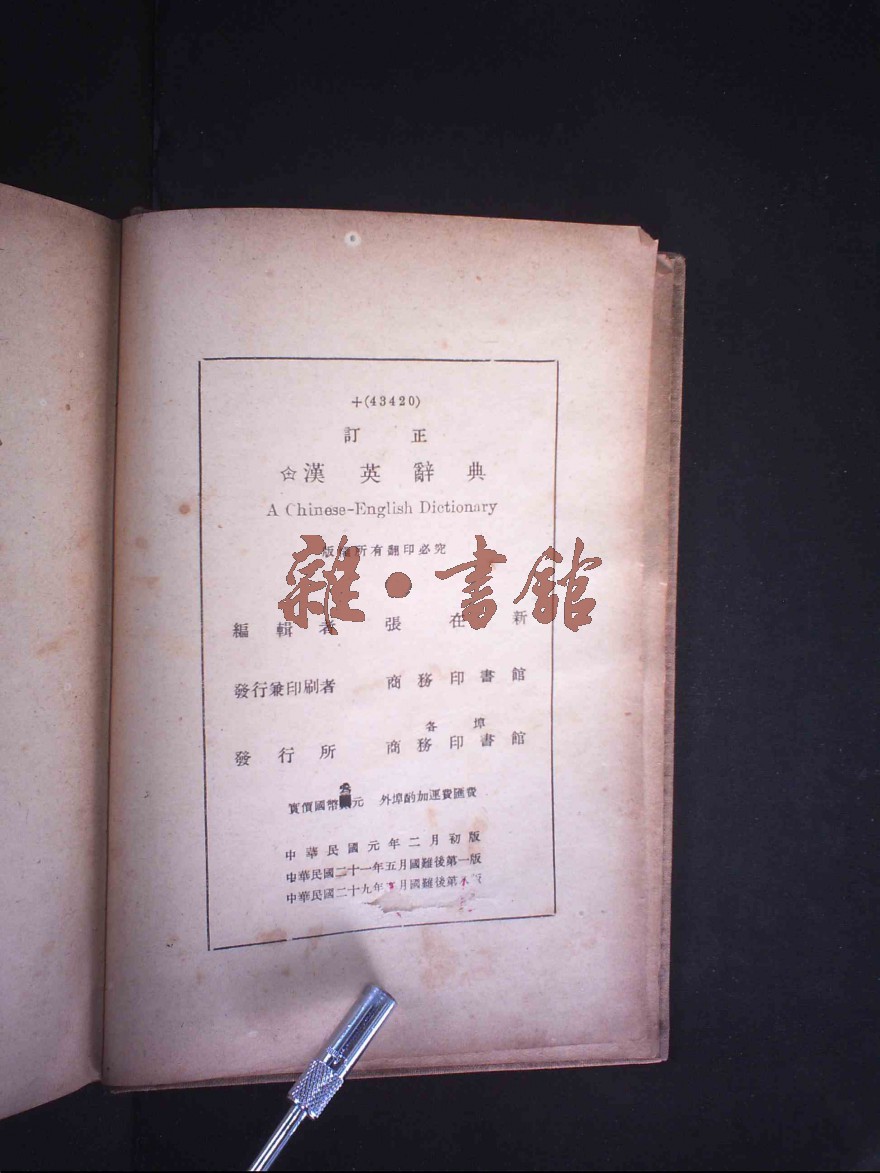 +(43420)
訂正
漢英辭典
A Chinese-English Dictionary
版權所有翻印必究
雜·書館
編輯者 張在新
發行兼印刷者 商務印書館
各埠
發行所 商務印書館
實價國幣 元 外埠酌加運費匯費
中華民國元年二月初版
中華民國二十一年五月國難後第一版
中華民國二十九年 月國難後第 版